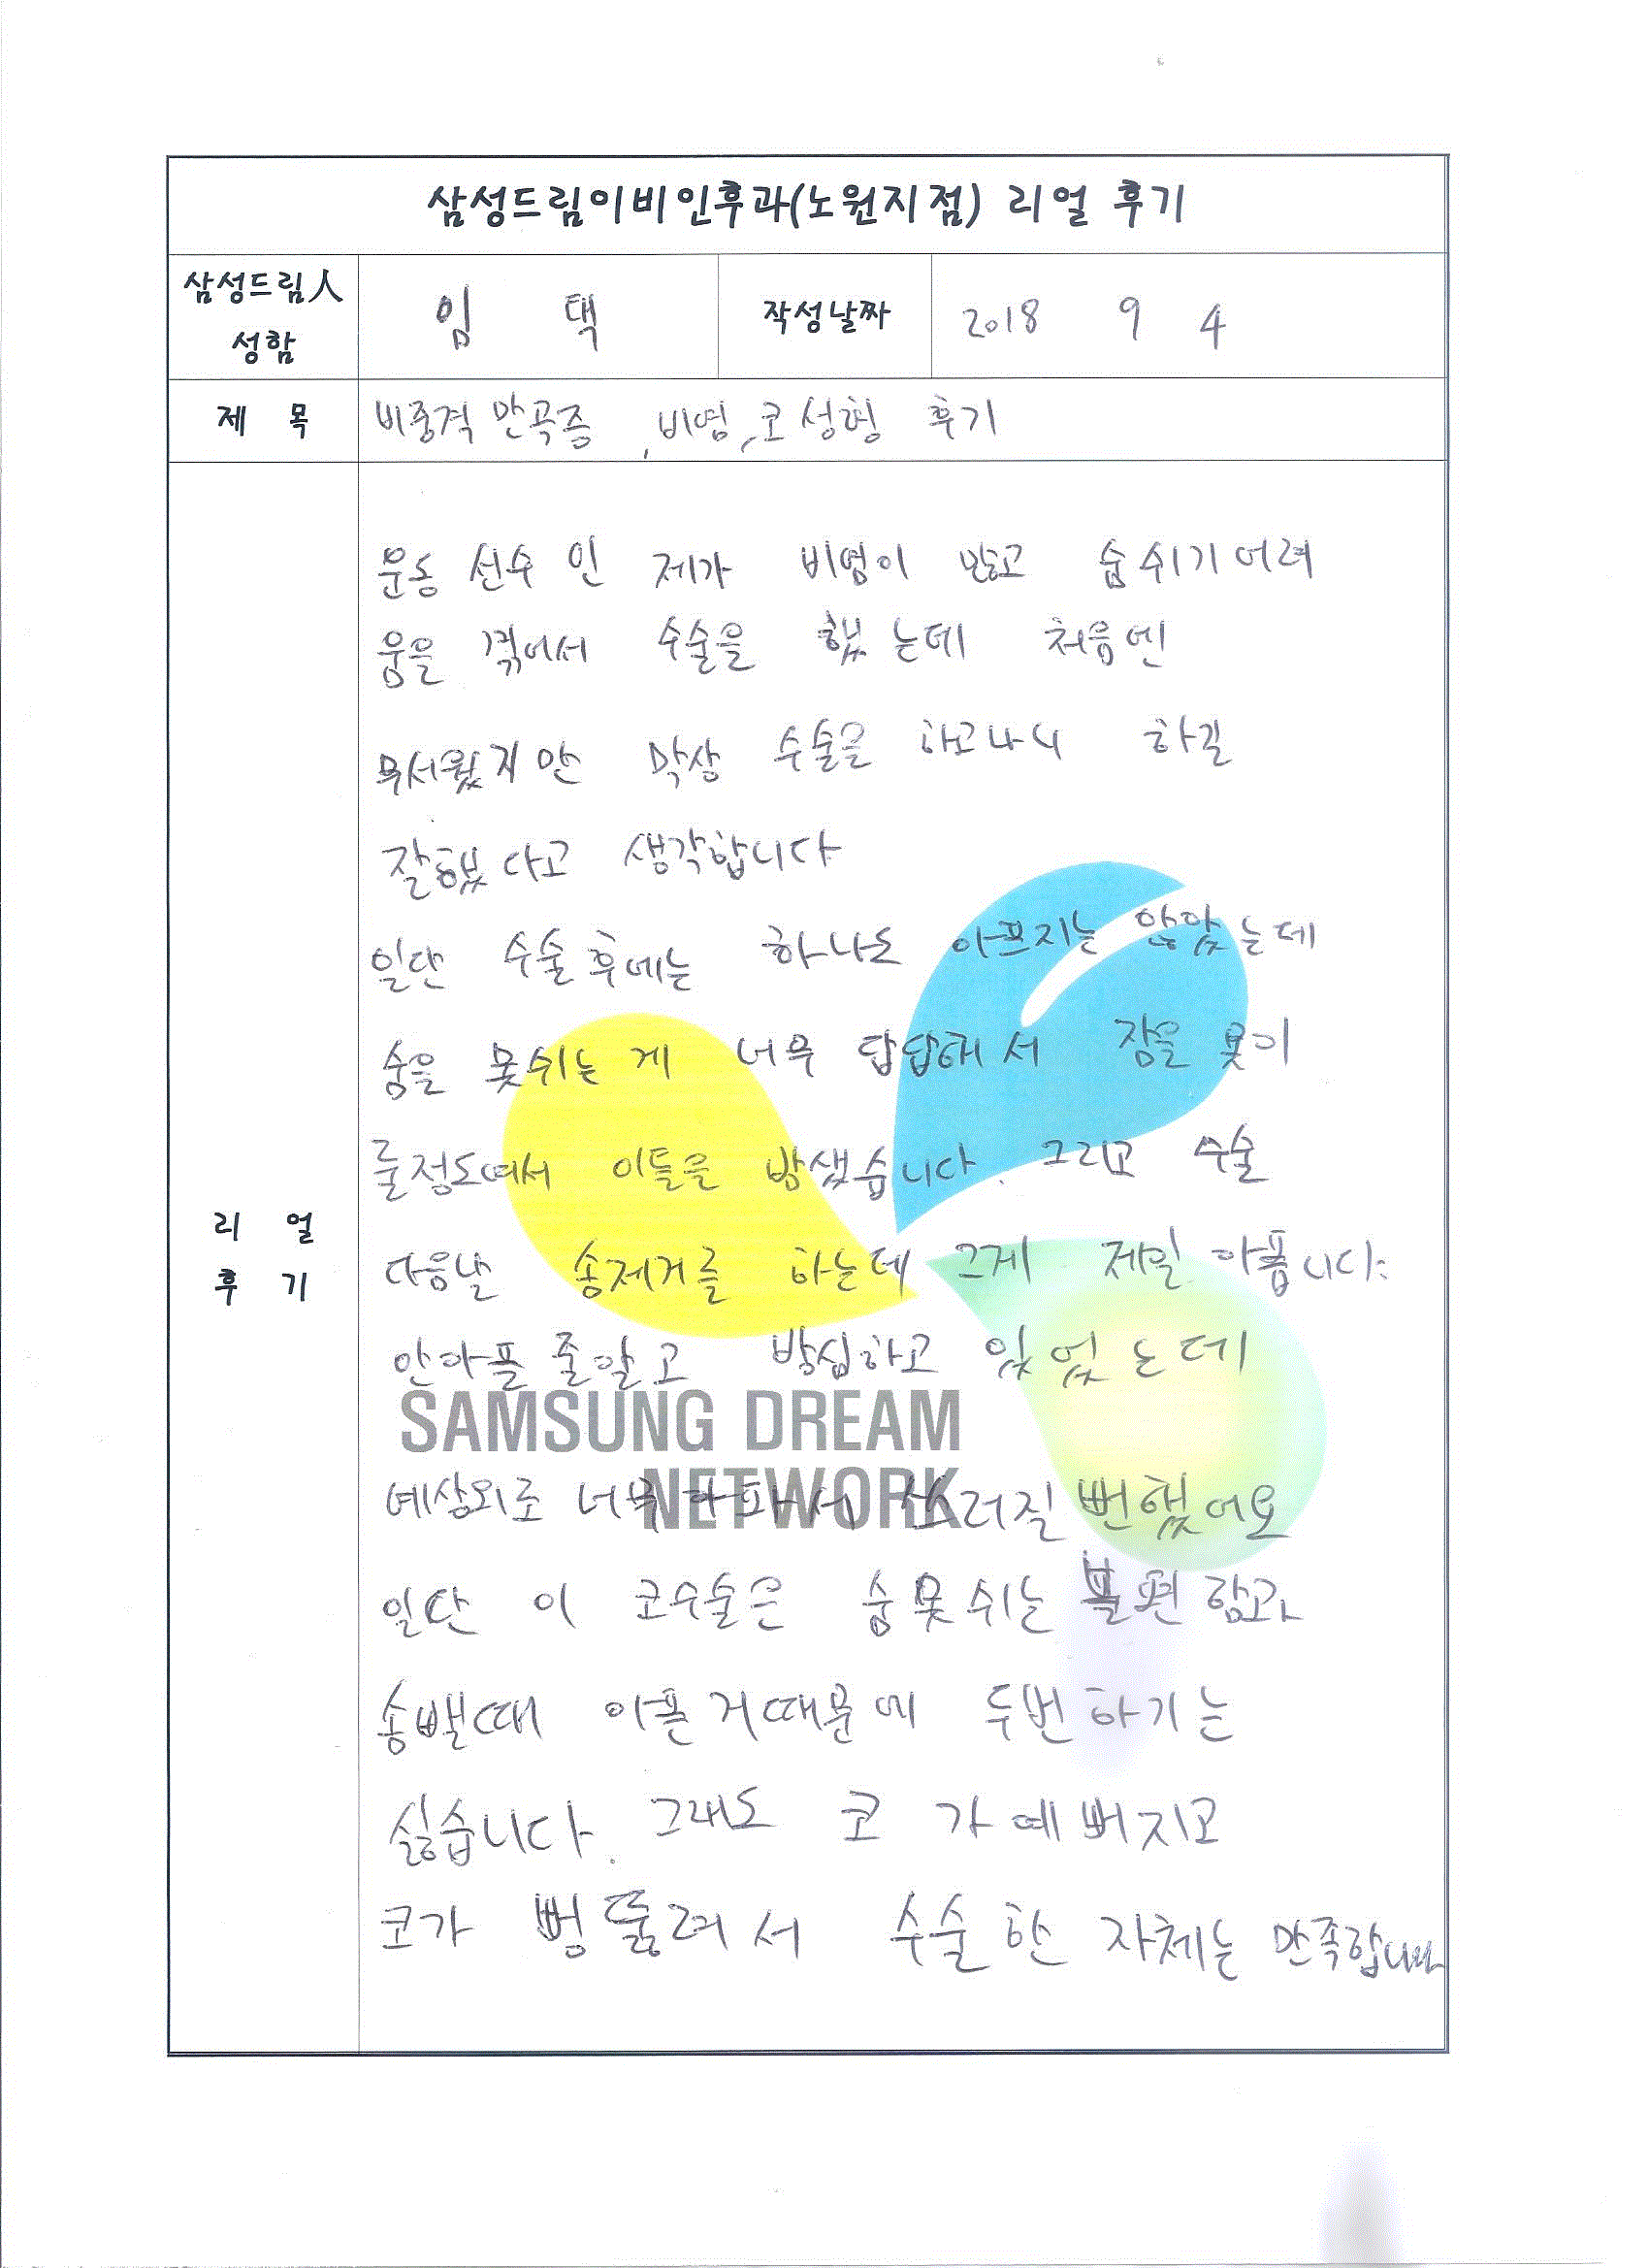 삼성드림이비인후과(노원지점) 리얼 후기
삼성드림人 성함
임 택
작성날짜
2018 9 4
제 목
비중격 만곡증, 비염, 코성형 후기
리 얼
후 기
운동 선수 인 제가 비염이 많고 숨쉬기 어려
움을 겪어서 수술을 했는데 처음엔
무서웠지만 막상 수술을 하고나니 하길
잘했다고 생각합니다
일단 수술후에는 하나도 아프지는 않았는데
숨을 못쉬는 게 너무 답답해서 잠을 못이
룰정도여서 이틀은 밤샜습니다. 그리고 수술
다음날 솜제거를 하는데 그게 제일 아픕니다.
안아플 줄알고 방심하고 있었는데
예상외로 너무 아파서 쓰러질 뻔했어요
일단 이 코수술은 숨못쉬는 불편함과
솜뺄때 아픈거때문에 두번하기는
싫습니다. 그래도 코가 예뻐지고
코가 뻥뚫려서 수술한 자체는 만족합니다
SAMSUNG DREAM
NETWORK